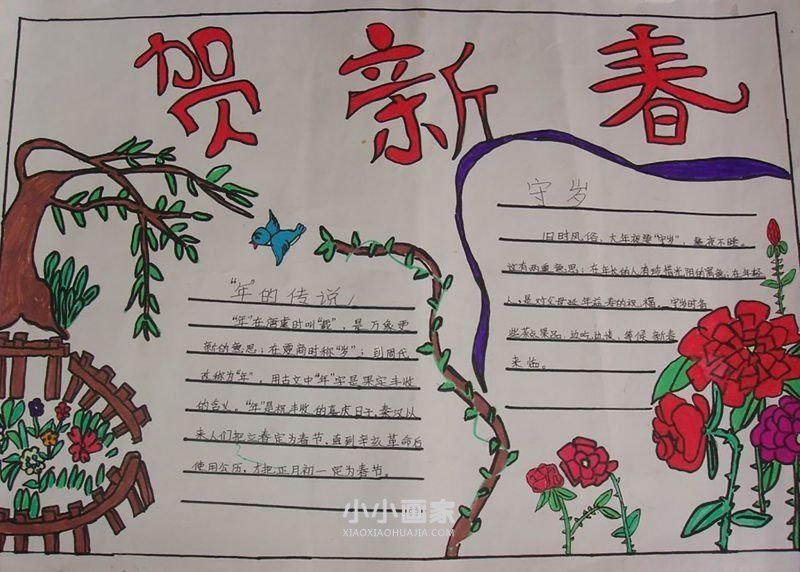 贺新春
"年"的传说
"年"在唐虞时叫"载",是万象更
新的意思;在夏商时称"岁";到周代
改称为"年"。用古文中"年"字是果实丰收
的含义。"年"是祝丰收的喜庆日子,秦汉以
来人们把立春定为春节,直到辛亥革命后
使用公历,才把正月初一定为春节。
守岁
旧时风俗,大年夜要"守岁",整夜不睡。
这有两重意思:在年长的人有珍惜光阴的寓意;在年轻
人,是对父母延年益寿的祝福。守岁时备
些茶点果品,边吃边谈,等候新春
来临。
小小画家
XIAOXIAOHUAJIA.COM